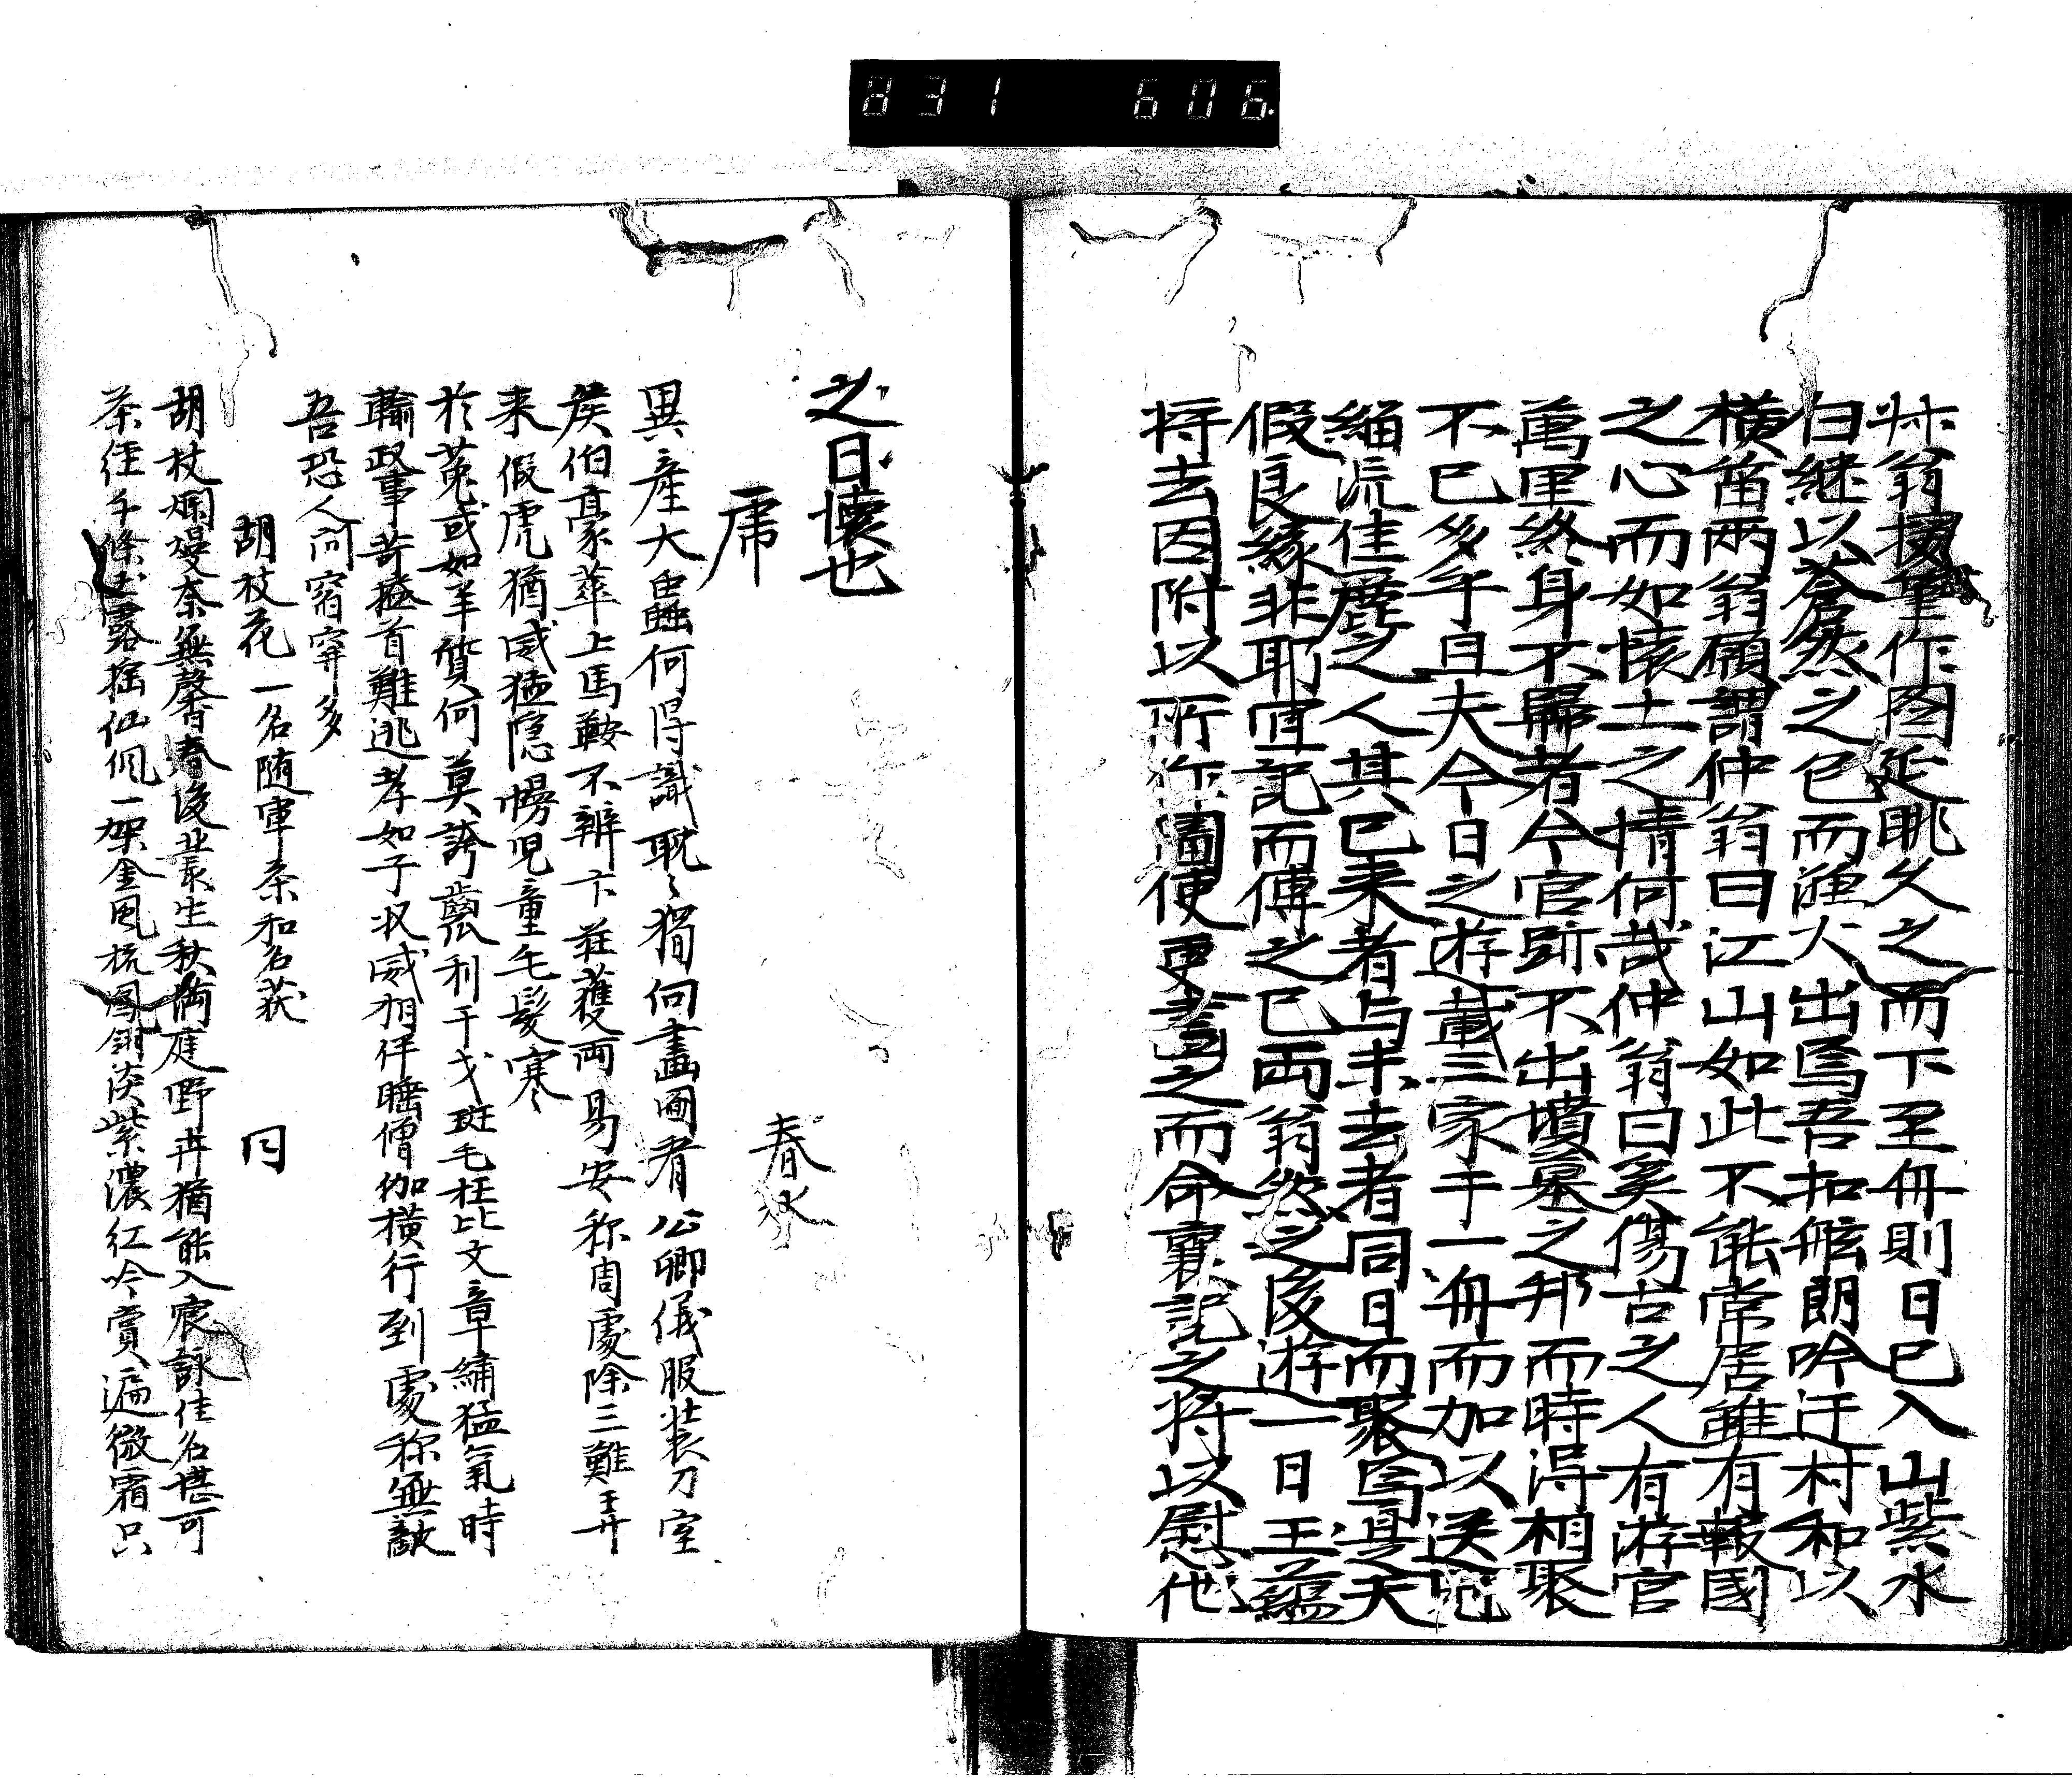 831 606
翁援筆作図延眺久之而下至舟則日已入山紫水
白継以蒼然之色而漁火出焉吾扣舷朗吟汪村和以
横笛兩翁顧謂仲翁曰江山如此不能常居雖有報國
之心而如懐土之情何哉仲翁曰奚傷古之人有游官
萬里終身不歸者今官跡不出墳墓之邦而時得相聚
不已多乎且夫今日之遊載三家于一舟而加以送
緇流佳麗之人其已来者与未去者同日而聚焉真天
假良縁非耶宜記而傅之已両翁然之後游一日玉蘊
将去因附以所作圖使更書之而命襄記之将以慰他
之日懐也
虎
春水
異產大蟲何得識耽〻獨向畫圖看公卿儀服装刀室
侯伯豪華上馬鞍不辨卞荘獲両易安称周處除三難弄
来假虎猶威猛隠幔児童毛髪寒
於菟或如羊質何莫誇齒張利干戈斑毛枉比文章繍猛氣時
輸政事苛搖首難逃孝如子収威相伴睡僧伽横行到處称無敵
吾恐人間窞穽多
胡枝花 一名随軍茶和名萩
同
胡枝爛熳奈無馨春後叢生秋満庭野井猶能入宸詠佳名堪可
茶経千條玉露揺仙佩一架金風梳鳳翎淡紫濃紅吟賞遍微霜只